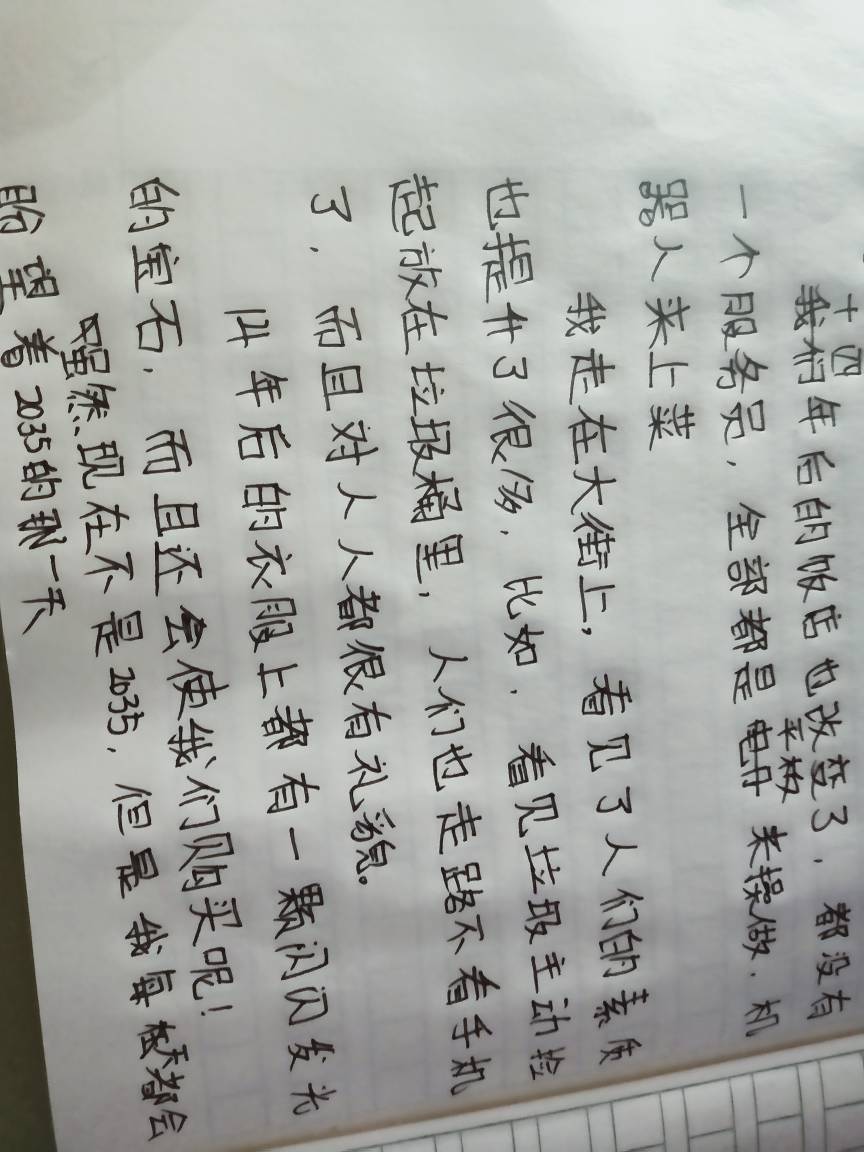 十四
我们年后的饭店也改变了，都没有
平板
一个服务员，全部都是电来操做，机
器人来上菜
我走在大街上，看见了人们的素质
也提升了很多，比如，看见垃圾主动捡
起放在垃圾桶里，人们也走路不看手机
了，而且对人人都很有礼貌。
14年后的衣服上都有一颗闪闪发光
的宝石，而且还会使我们购买呢！
虽然现在不是2035，但是我每天都会
盼望着2035的那一天